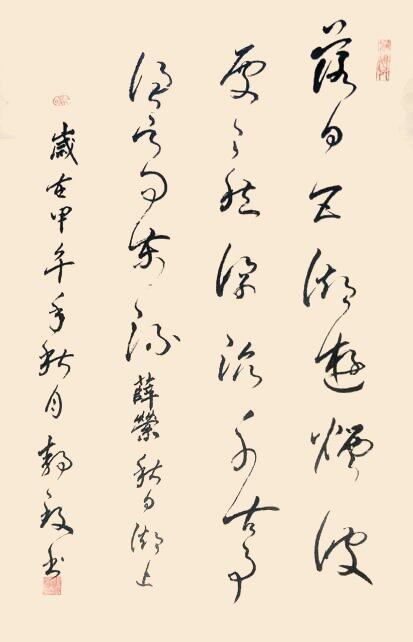 落日五湖遊煙波
處々愁浮沉千古事
誰與問東流薛瑩秋日湖上
歲在甲午年秋月书